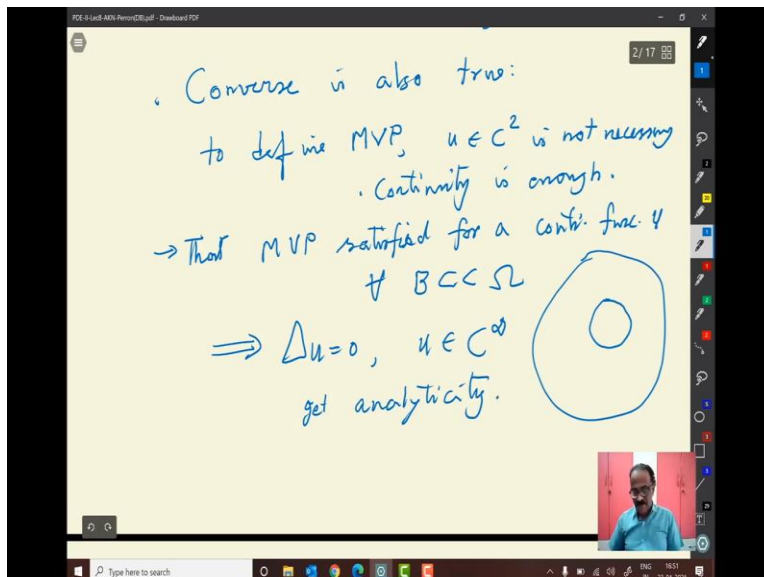 PDE-II-Lec8-AKN-Perron(DB).pdf - Drawboard PDF
2/17
. Converse is also true:
to define MVP, u ∈ C² is not necessary
. Continuity is enough.
→ That MVP satisfied for a conti. func. u
∀ B ⊂⊂ Ω
⟹ Δu = 0, u ∈ C^∞
get analyticity.
Type here to search
ENG
16:51